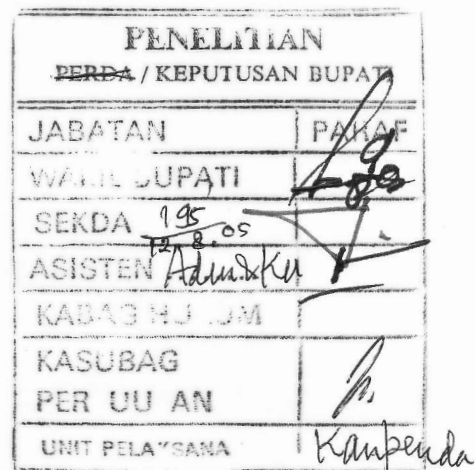 PENELITIAN
PERDA / KEPUTUSAN BUPATI
JABATAN PARAF
WAKIL BUPATI
SEKDA 195
12.8.05
ASISTEN Adm & Ku
KABAG HUKUM
KASUBAG
PER UU AN
UNIT PELAKSANA Kanpenda